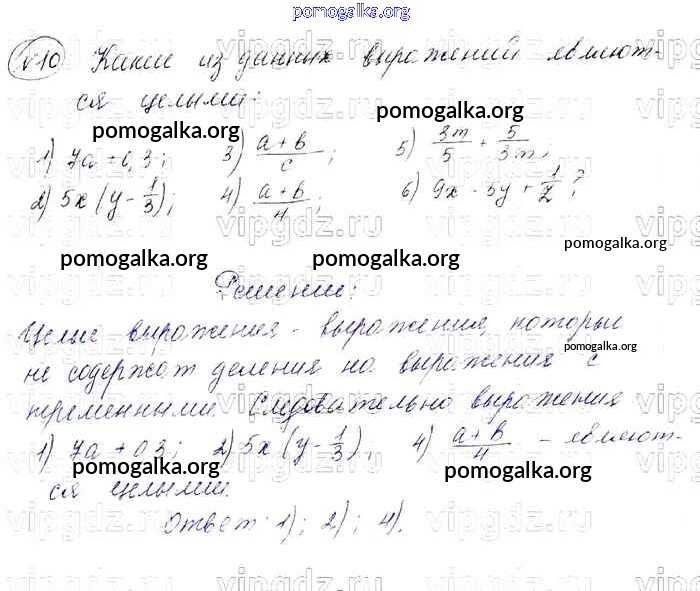 pomogalka.org
№10 Какие из данных выражений являют-
ся целыми:
pomogalka.org pomogalka.org
1) 7a + 0,3; 3) (a+b)/c ; 5) 3m/5 + 5/3m ;
2) 5x (y - 1/3); 4) (a+b)/4 ; 6) 9x - 5y + 1/z ?
pomogalka.org pomogalka.org pomogalka.org
Решение:
Целые выражения - выражения, которые
pomogalka.org
не содержат деления на выражения с
переменными. Следовательно выражения
pomogalka.org
1) 7a + 0,3; 2) 5x (y - 1/3), 4) (a+b)/4 - являют-
pomogalka.org pomogalka.org
ся целыми.
Ответ: 1); 2); 4).
vipgdz.ru